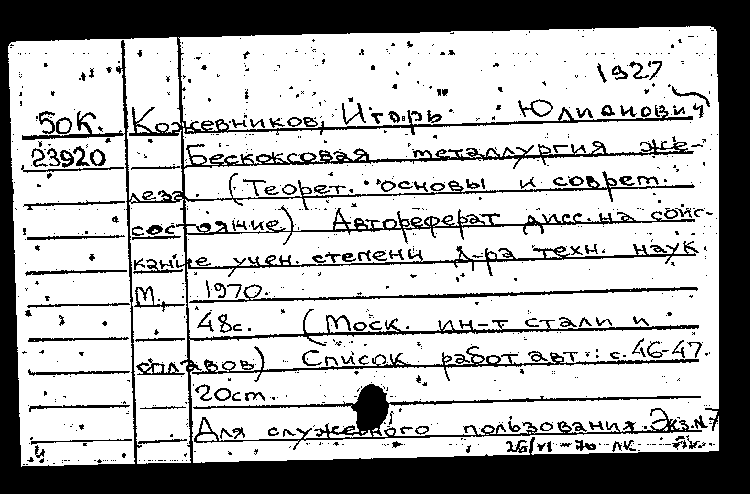 1927
50К. Кожевников, Игорь Юлианович
23920 Бескоксовая металлургия же-
леза. (Теорет. основы и соврет.
состояние) Автореферат дисс. на соис-
кание учен. степени д-ра техн. наук.
М., 1970.
48с. (Моск. ин-т стали и
сплавов) Список работ авт.: с. 46-47.
20ст.
Для служебного пользования. Экз.№7
26/VI-70 ЛК